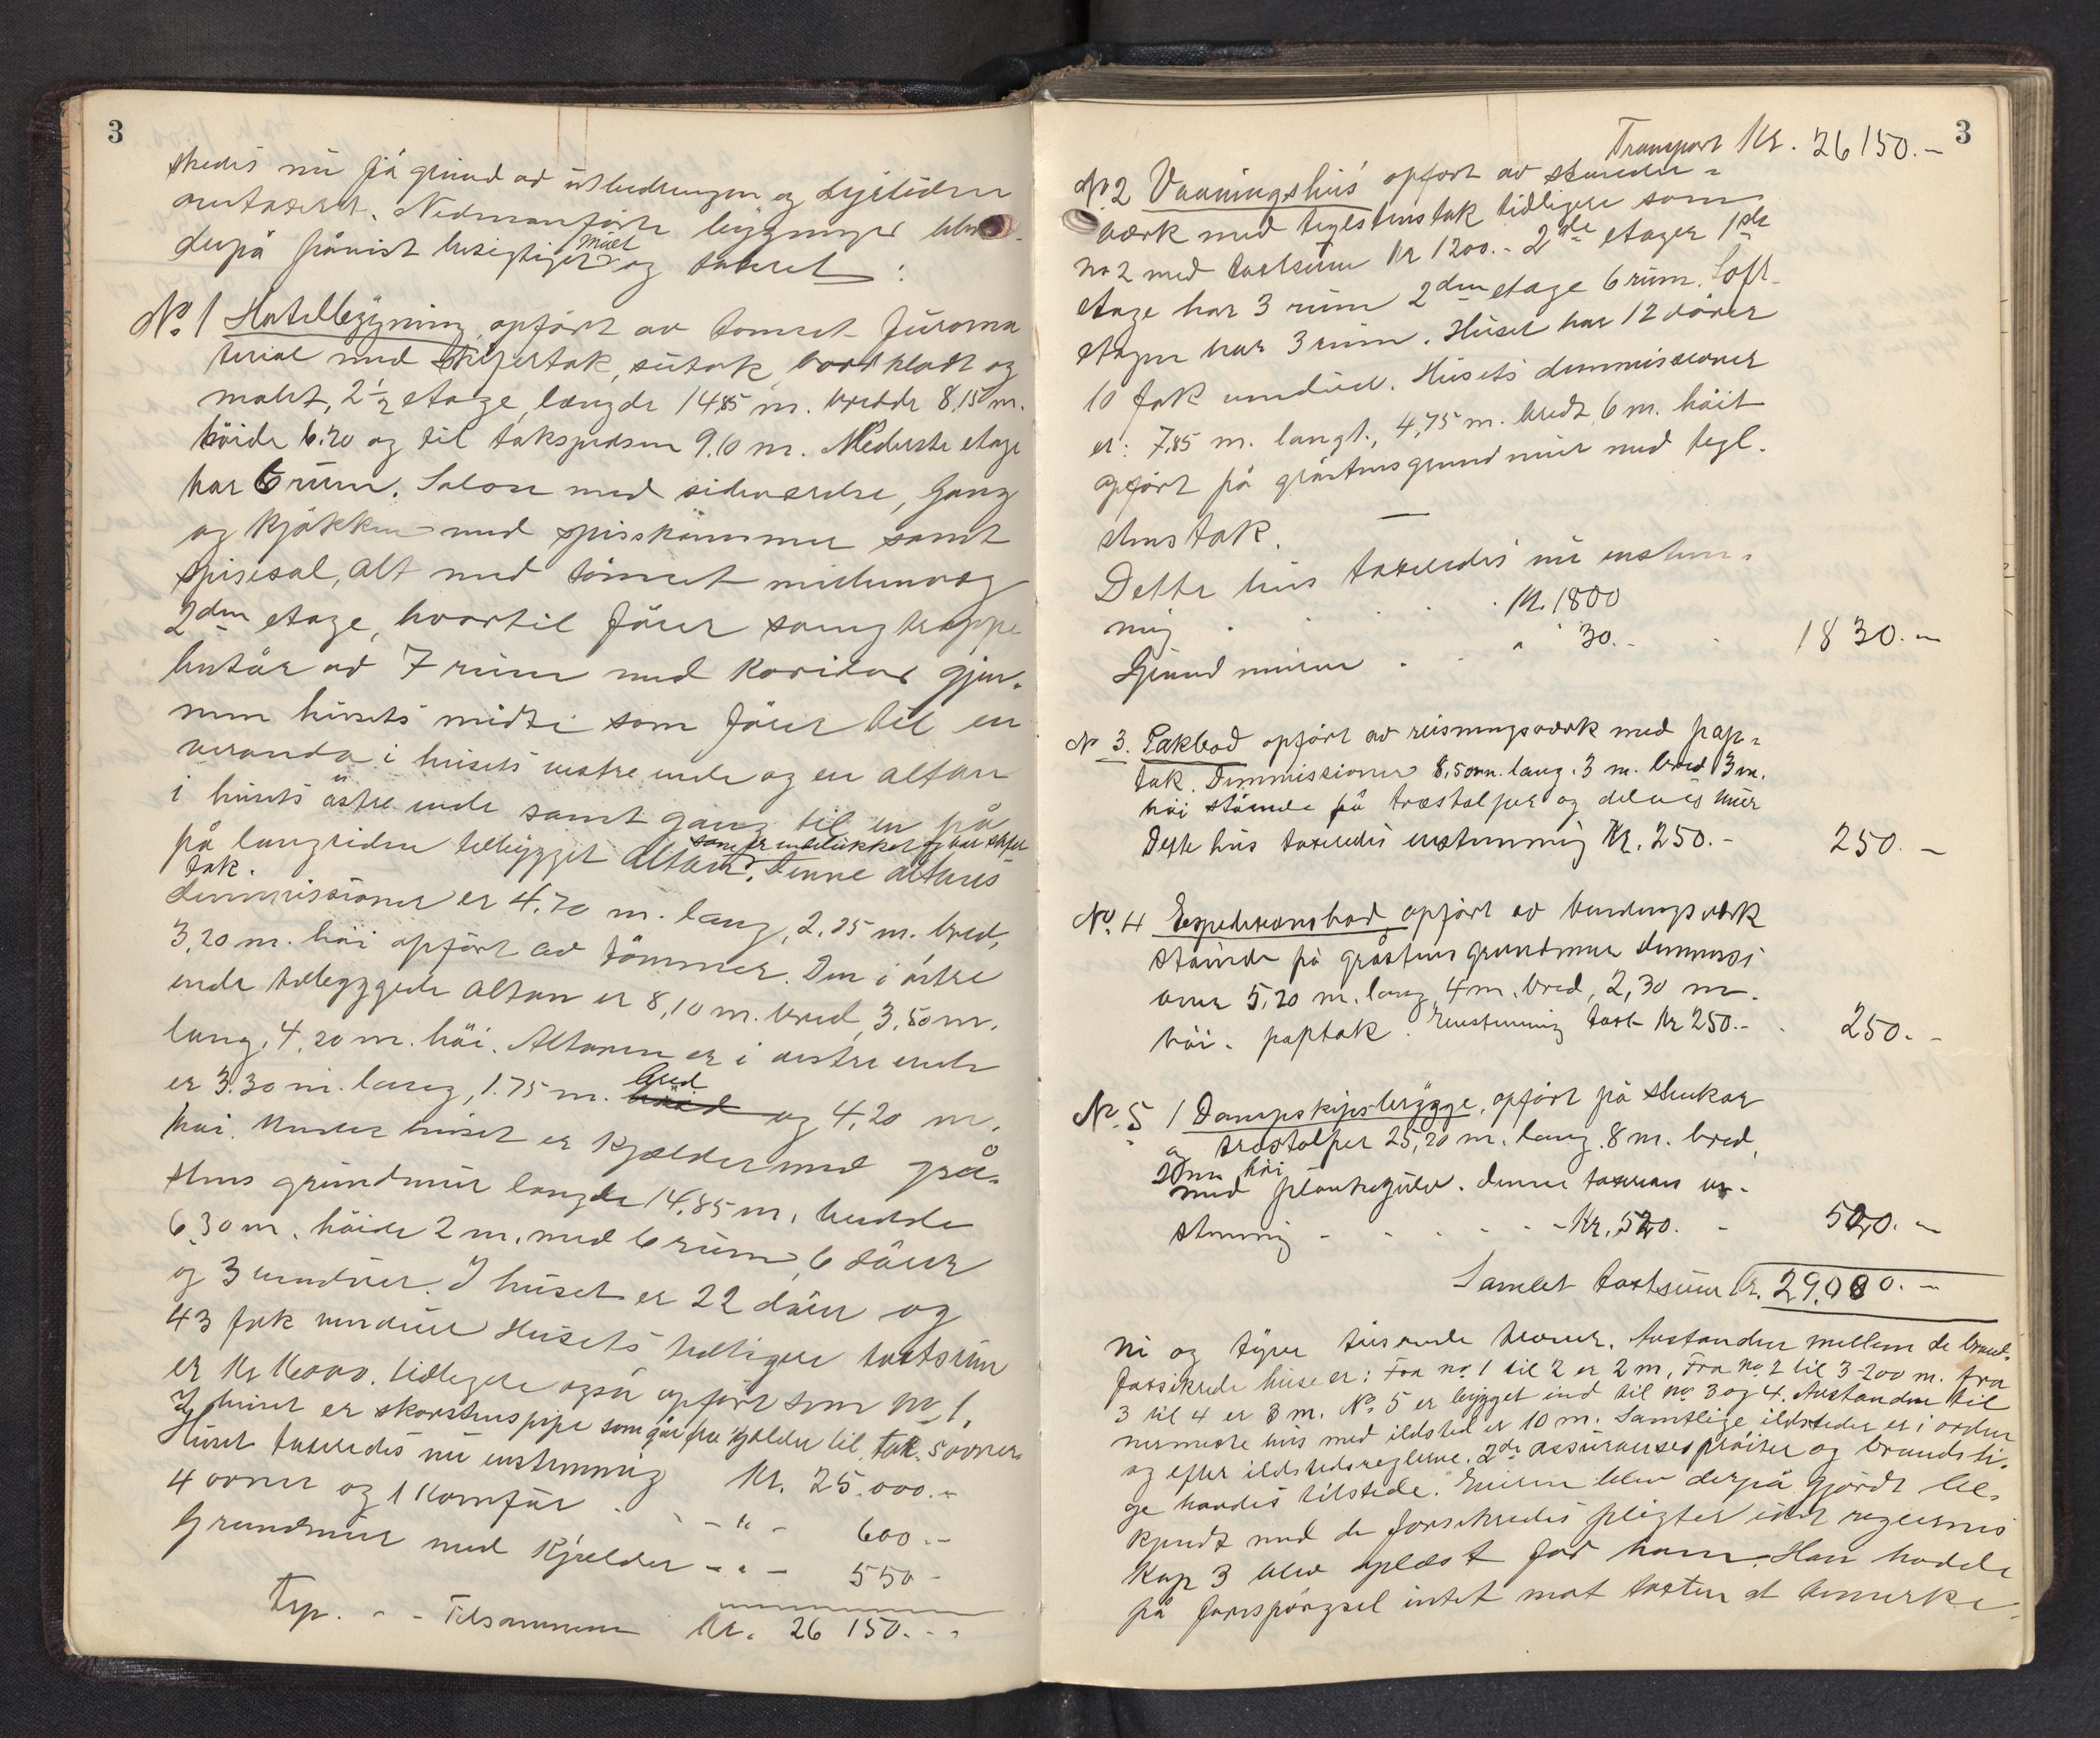 3
skedes nu på grund av utbedringen og dyrtiden
omtaxeret. Nedenanførte bygninger blev
derpå påvist besigtiget målt og taxeret :
No. 1 Hotelbygning opført av tømret furuma
teriale med skifertak, sutak, bordklædt og
malet, 2 1/2 etage, længde 14,85 m. bredde 8,15 m.
höide 6.20 og til takspidsen 9.10 m. Nederste etage
har 6 rum. Salon med sideværelse, Gang
og Kjøkken med spiskammer samt
spisesal, alt med tömret midtenvæg
2den etage, hvortil fører svingtrappe
består av 7 rum med Koridor gjen-
nem husets midte som fører til en
veranda i husets vestre ende og en altan
i husets østre ende samt gang til en på
på langsiden tilbygget altan som er indelukket og har skifer
tak. Denne altans
dimmissioner er 4.70 m. lang, 2.25 m. bred,
3,20 m. höi opført av tömmer. Den i östre
ende tilbyggede altan er 8,10 m. bred, 3,50 m.
lang, 4,20 m. höi. Altanen er i vestre ende
er 3.30 m. lang, 1.75 m. bred og 4,20 m.
höi. Under huset er Kjælder med grå-
stens grundmur længde 14,85 m, bredde
6,30 m, höide 2 m, med 6 rum, 6 dörer
og 3 vinduer. I huset er 22 dörer og
43 fak vinduer Husets tidligere taxtsum
er Kr 16000. tidligere også opført som No 1.
I huset er skorstenspipe som går fra Kjælder til tak. 5 ovner
Huset taxeredes nu enstemmig Kr. 25.000.-
4 ovner og 1 Komfür - " - 600.-
Grundmur med Kjælder - " - 550 -
Trp. - - Tilsammen Kr. 26 150. - -
3
Transport Kr. 26 150.-
No. 2 Vaaningshus opført av stender-
værk med teglstenstak tidligere som
no 2 med taxtsum Kr 1200.- 2de etager 1ste
etage har 3 rum 2den etage 6 rum. Loft-
etagen har 3 rum. Huset har 12 dörer
10 fak vinduer. Husets dimmissioner
er: 7,85 m. langt, 4,75 m. bredt, 6 m. höit
opført på gråstensgrundmur med tegl-
stens tak.
Dette hus taxeredes nu enstem-
mig . . . Kr. 1800
Grundmuren . . " 30.- 1830.-
No 3. Pakbod opført av reisningsværk med pap-
tak. Dimmissioner 8,50 m. lang. 3 m. bred 3 m.
höi stående på træstolper og delvis mur
Dette hus taxeredes enstemmig Kr. 250.- 250.-
No. 4 Expeditionsbod, opført av bindingsværk
stående på gråstens grundmur dimmissi
oner 5,20 m. lang, 4 m. bred, 2,30 m.
höi. paptak. Enstemmig taxt Kr 250.- 250.-
No. 5 1 Dampskipsbrygge, opført på stenkar
og træstolper 25,20 m. lang 8 m. bred,
höi
med plankegulv. denne taxeres en-
stemmig - - - - - Kr. 520. - 520.-
Samlet taxtsum Kr. 29.000.-
ni og tyve tusende kroner. Avstanden mellem de brand-
forsikrede huse er: Fra no. 1 til 2 er 2 m, Fra no. 2 til 3 200 m. fra
3 til 4 er 8 m. No. 5 er bygget ind til no 3 og 4. Avstanden til
nærmeste hus med ildsted er 10 m. Samtlige ildsteder er i orden
og efter ildstedsreglerne. 2de assuransesprøiter og brandsti-
ge havdes tilstede. Eieren blev derpå gjordt be-
kjendt med de forsikredes pligter idet reglernes
Kap 3 blev oplæst for ham. Han hadde
på forespørgsel intet mot taxten at bemerke.